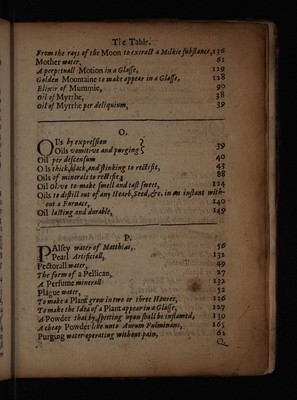 The Table.
From the rays of the Moon to extract a Milkie substance, 136
Mother water, 61
A perpetuall Motion in a Glasse, 129
Golden Mountaine to make appeare in a Glasse, 128
Elixir of Mummie, 90
Oil of Myrrhe, 38
Oil of Myrrhe per deliquium, 39
O.
Oils by expression }
Oils vomitive and purging } 39
Oil per descensum 40
Oils thick, black, and stinking to rectifie, 43
Oils of minerals to rectifie, 88
Oil Olive to make smell and tast sweet, 124
Oils to distill out of any Hearb, Seed, &c. in an instant with-
out a Furnace, 140
Oil lasting and durable, 149
P.
Palsey water of Matthias, 56
Pearl Artificiall, 132
Pectorall water, 49
The form of a Pellican, 27
A Perfume minerall 132
Plague water, 52
To make a Plant grow in two or three Houres, 126
To make the Idea of a Plant appear in a Glasse, 127
A Powder that by spitting upon shall be inflamed, 130
A cheap Powder like unto Aurum Fulminans, 165
Purging water operating without pain, 61
Q